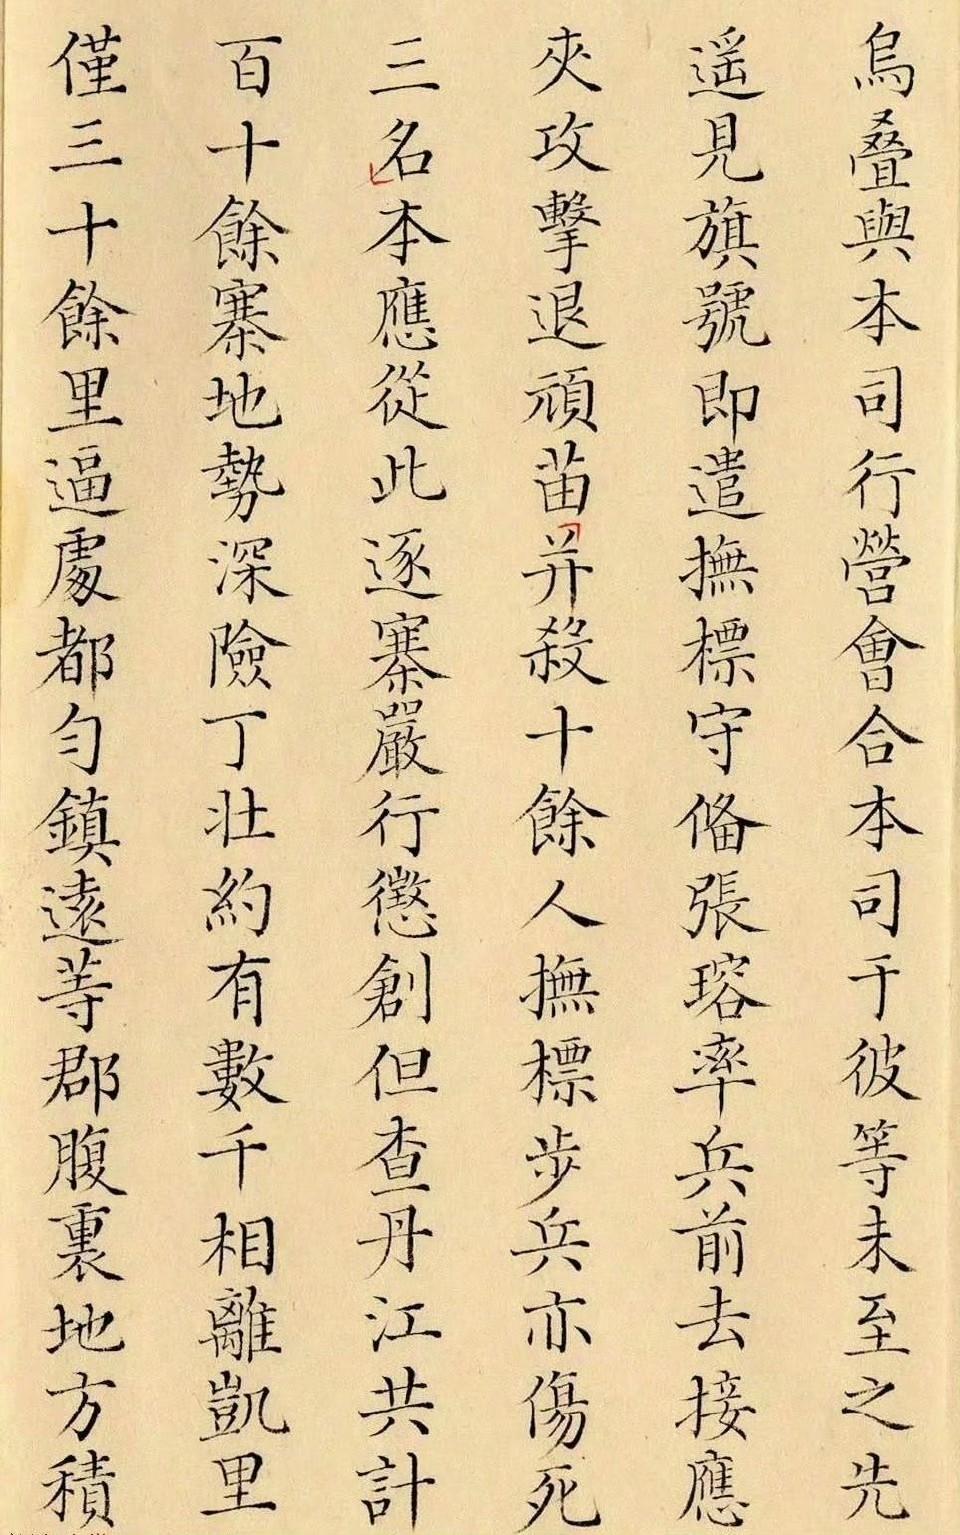 烏叠與本司行營會合本司于彼等未至之先
遥見旗號即遣撫標守俻張瑢率兵前去接應
夾攻擊退頑苗并殺十餘人撫標步兵亦傷死
三名本應從此逐寨嚴行懲創但查丹江共計
百十餘寨地勢深險丁壯約有數千相離凱里
僅三十餘里逼處都勻鎮遠等郡腹裏地方積